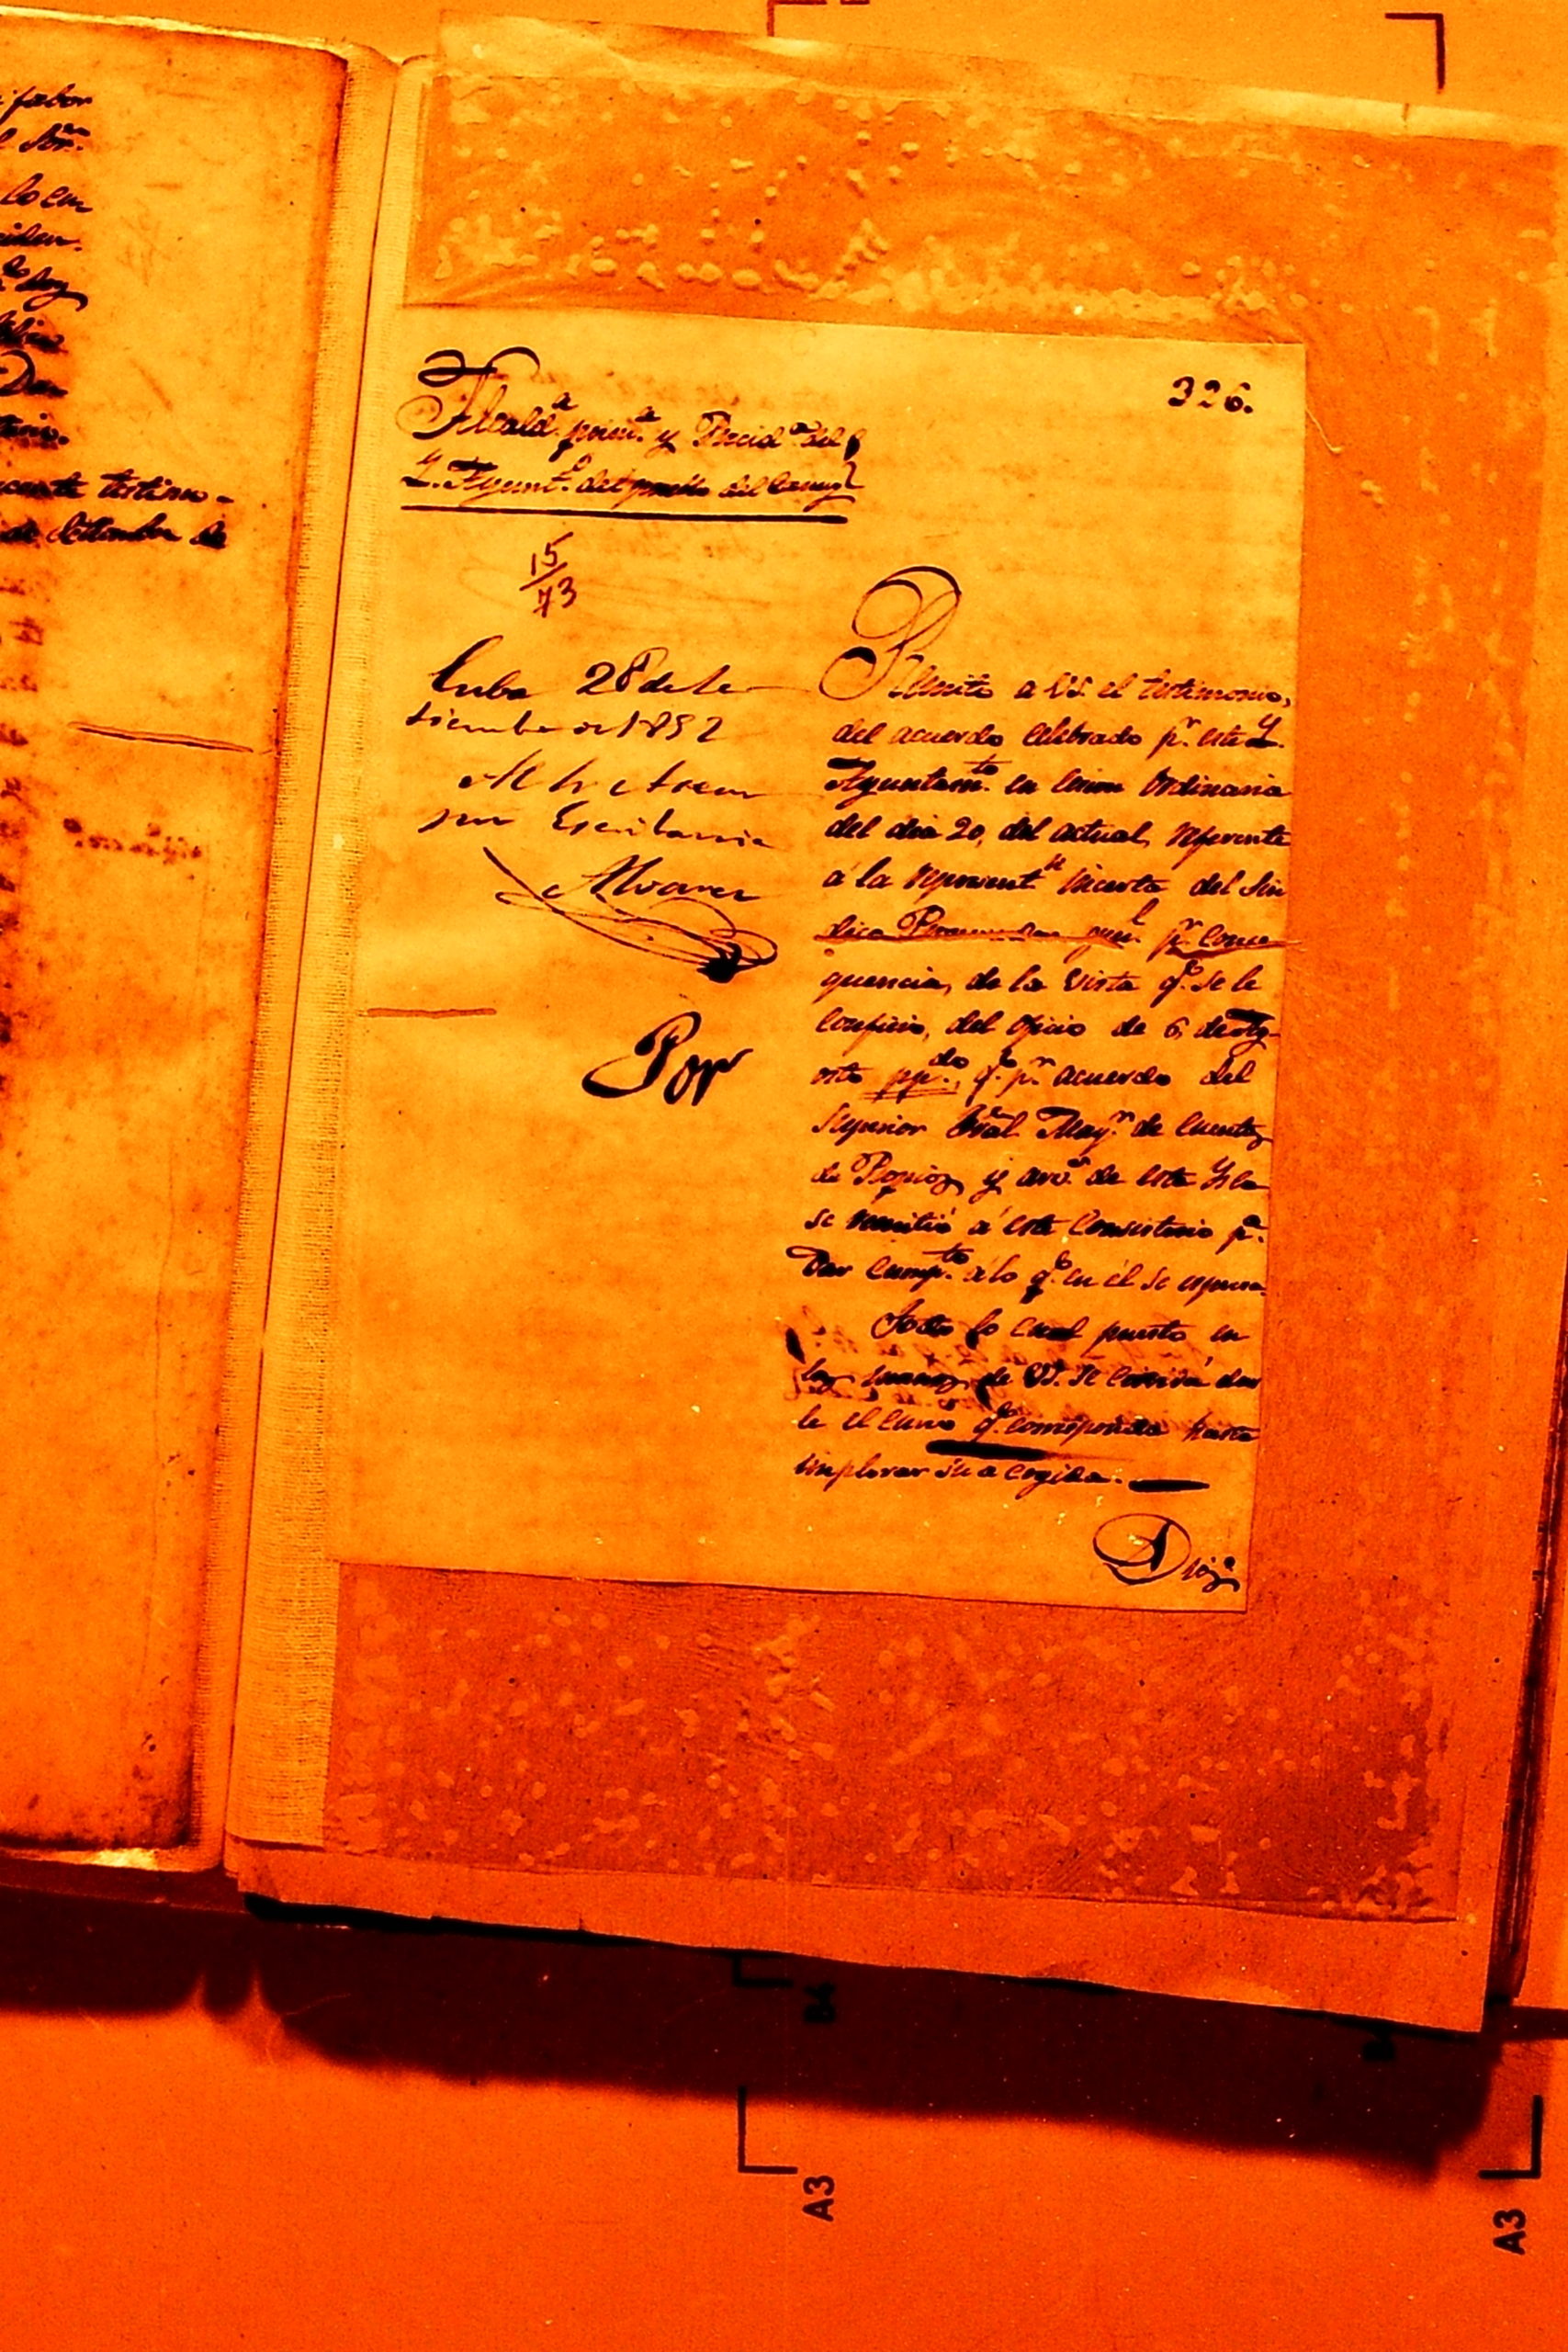 fabor
Sor.
lo en
siden.
hoy
Don
testimo-
de Settembre de
326.
Alcald.ª prim.ª y Precid.ª del
Y. Ayunt.º del pueblo del Caney
15
73
Cuba 28 de Se-
tiembre de 1852
Al
por Escribania
Alvarez
Por
Remito a VS. el testimonio,
del acuerdo celebrado p.r este Y.
Ayuntam.to en cecion Ordinaria
del dia 20, del actual, referente
á la represent.n incerta del Sin
dico Procurador gen.l p.r conce
quencia, de la vista q.e se le
confirio, del oficio de 6, de Ag-
osto pp.do, q.e p.r acuerdo del
Superior Tral. May.r de Cuentas
de Propios y arv.s de esta Ysla
se remitió á este Consistorio p.ª
dar cump.to a lo q.e en él se espresa.
Todo lo cual puesto en
las manos de VS. se cervirá dar
le el curso q.e corresponda hasta
implorar su acogida.
Dios
B4
A3
A3